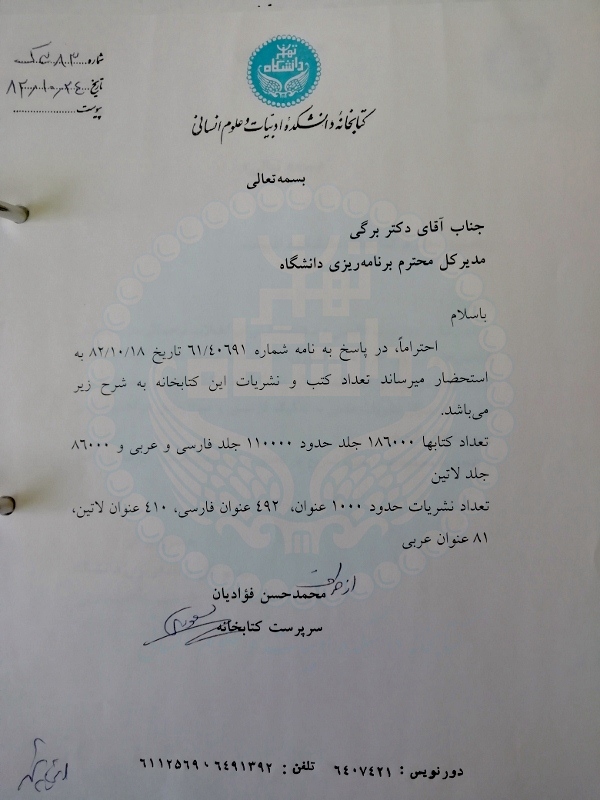 تهران
دانشگاه
شماره
تاریخ ۸۲/۱۰/۲۴
پیوست
کتابخانهٔ دانشکدهٔ ادبیات و علوم انسانی
بسمه تعالی
جناب آقای دکتر برگی
مدیرکل محترم برنامه‌ریزی دانشگاه
باسلام
احتراماً، در پاسخ به نامه شماره ۶۱/۴۰۶۹۱ تاریخ ۸۲/۱۰/۱۸ به
استحضار میرساند تعداد کتب و نشریات این کتابخانه به شرح زیر
می‌باشد.
تعداد کتابها ۱۸۶۰۰۰ جلد حدود ۱۱۰۰۰۰ جلد فارسی و عربی و ۸۶۰۰۰
جلد لاتین
تعداد نشریات حدود ۱۰۰۰ عنوان، ۴۹۲ عنوان فارسی، ۴۱۰ عنوان لاتین،
۸۱ عنوان عربی
از طرف
محمدحسن فؤادیان
سرپرست کتابخانه
دورنویس : ۶۴۰۷۴۲۱ تلفن : ۶۴۹۱۳۹۲ - ۶۱۱۲۵۶۹